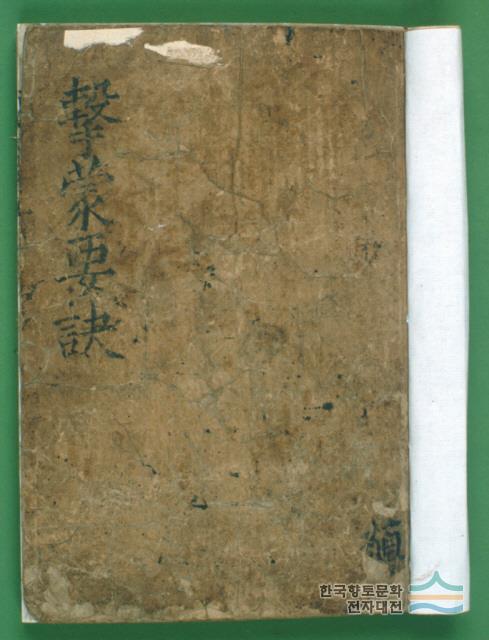 擊蒙要訣
한국향토문화
전자대전